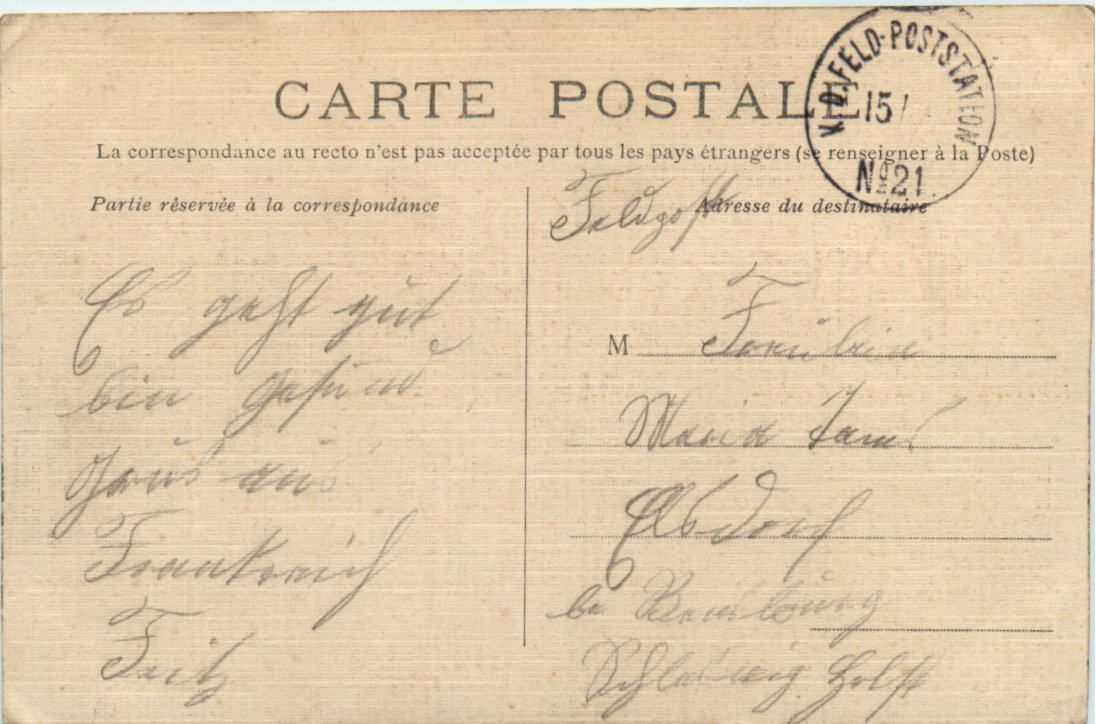 CARTE POSTALE
K.D. FELD-POSTSTATION
15/
No 21
La correspondance au recto n'est pas acceptée par tous les pays étrangers (se renseigner à la Poste)
Partie réservée à la correspondance
Adresse du destinataire
Es geht gut
bin gesund
Grüs aus
Frankreich
Fritz
Feldpost
M Fräulein
Maria
Elsdorf
be Rendsburg
Schleswig Holst